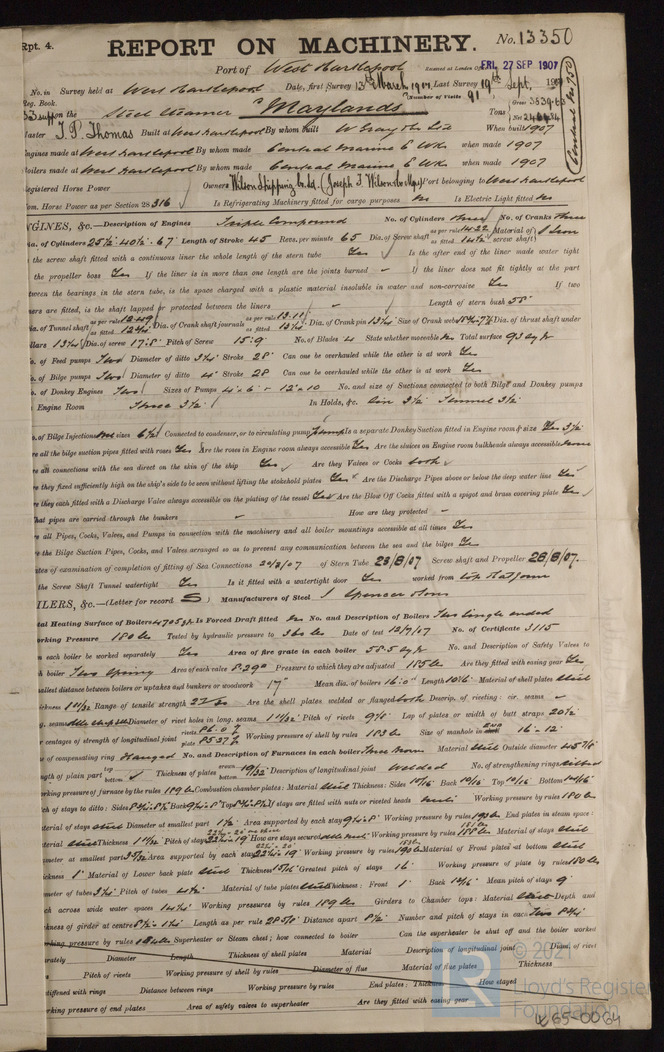 Rpt. 4.
REPORT ON MACHINERY. No. 13350
Port of West Hartlepool Received at London Office FRI. 27 SEP 1907
No. in Survey held at West Hartlepool Date, first Survey 13th March 1907, Last Survey 19th Sept, 190
Reg. Book. (Number of Visits 91
33 supp on the Steel Steamer "Maylands" Tons Gross 3539.63 Net
Master T. P. Thomas Built at West Hartlepool By whom built W Gray & Co Ltd When built 1907
Engines made at West Hartlepool By whom made Central Marine E Wks when made 1907
Boilers made at West Hartlepool By whom made Central Marine E Wks when made 1907
Registered Horse Power Owners Wilson Shipping Co. Ld. (Joseph J. Wilson & Co Mgrs) Port belonging to West Hartlepool
Nom. Horse Power as per Section 28 316 Is Refrigerating Machinery fitted for cargo purposes Is Electric Light fitted
NGINES, &c.—Description of Engines Triple Compound No. of Cylinders Three No. of Cranks Three
Dia. of Cylinders 25½. 40½. 67 Length of Stroke 45 Revs. per minute 65 Dia. of Screw shaft as per rule 14.22 as fitted 14½ Material of screw shaft Iron
the screw shaft fitted with a continuous liner the whole length of the stern tube Yes Is the after end of the liner made water tight
the propeller boss Yes If the liner is in more than one length are the joints burned If the liner does not fit tightly at the part
tween the bearings in the stern tube, is the space charged with a plastic material insoluble in water and non-corrosive Yes If two
ners are fitted, is the shaft lapped or protected between the liners Length of stern bush 58"
Dia. of Tunnel shaft as per rule 12.49 as fitted Dia. of Crank shaft journals as per rule 13.11 as fitted 13½ Dia. of Crank pin 13½ Size of Crank webs Dia. of thrust shaft under
ollars 13½ Dia. of screw 17.8 Pitch of Screw 15.9 No. of Blades 4 State whether moveable Total surface 93
No. of Feed pumps Two Diameter of ditto 3½ Stroke 28 Can one be overhauled while the other is at work Yes
No. of Bilge pumps Two Diameter of ditto 4 Stroke 28 Can one be overhauled while the other is at work Yes
No. of Donkey Engines Two Sizes of Pumps No. and size of Suctions connected to both Bilge and Donkey pumps
Engine Room Three 3½ In Holds, &c. Six 3½ Tunnel 3½
o. of Bilge Injections sizes 6½ Connected to condenser, or to circulating pump Pump Is a separate Donkey Suction fitted in Engine room & size Yes 3½
re all the bilge suction pipes fitted with roses Yes Are the roses in Engine room always accessible Yes Are the sluices on Engine room bulkheads always accessible None
re all connections with the sea direct on the skin of the ship Yes Are they Valves or Cocks both
re they fixed sufficiently high on the ship's side to be seen without lifting the stokehold plates Yes Are the Discharge Pipes above or below the deep water line Yes
re they each fitted with a Discharge Valve always accessible on the plating of the vessel Yes Are the Blow Off Cocks fitted with a spigot and brass covering plate Yes
hat pipes are carried through the bunkers How are they protected
re all Pipes, Cocks, Valves, and Pumps in connection with the machinery and all boiler mountings accessible at all times Yes
re the Bilge Suction Pipes, Cocks, and Valves arranged so as to prevent any communication between the sea and the bilges Yes
ates of examination of completion of fitting of Sea Connections of Stern Tube 23/8/07 Screw shaft and Propeller 28/8/07.
the Screw Shaft Tunnel watertight Yes Is it fitted with a watertight door Yes worked from top platform
ILERS, &c.—(Letter for record S) Manufacturers of Steel J Spencer & Sons
otal Heating Surface of Boilers 4705 Is Forced Draft fitted No. and Description of Boilers Two Single ended
orking Pressure 180 lbs Tested by hydraulic pressure to 360 lbs Date of test 12/7/07 No. of Certificate 3115
n each boiler be worked separately Yes Area of fire grate in each boiler 58.5 No. and Description of Safety Valves to
h boiler Two Spring Area of each valve 8.290 Pressure to which they are adjusted 185 lbs Are they fitted with easing gear Yes
mallest distance between boilers or uptakes and bunkers or woodwork 17" Mean dia. of boilers 16.0 Length 10.6 Material of shell plates Steel
hickness Range of tensile strength Are the shell plates welded or flanged both Descrip. of riveting: cir. seams
g. seams Diameter of rivet holes in long. seams Pitch of rivets 9⅛ Lap of plates or width of butt straps
er centages of strength of longitudinal joint rivets 86.0 plate 85.37 Working pressure of shell by rules 183 lbs Size of manhole in end 16.12
of compensating ring Flanged No. and Description of Furnaces in each boiler Three Material Steel Outside diameter
ngth of plain part top bottom Thickness of plates crown bottom 19/32 Description of longitudinal joint Welded No. of strengthening rings
orking pressure of furnace by the rules 189 lbs Combustion chamber plates: Material Steel Thickness: Sides Back Top Bottom
ch of stays to ditto: Sides Back Top If stays are fitted with nuts or riveted heads nuts Working pressure by rules 180 lbs
aterial of stays Steel Diameter at smallest part 1½ Area supported by each stay Working pressure by rules End plates in steam space:
aterial Steel Thickness Pitch of stays How are stays secured Working pressure by rules Material of stays Steel
ameter at smallest part Area supported by each stay Working pressure by rules Material of Front plates at bottom Steel
ickness 1" Material of Lower back plate Steel Thickness 15/16 Greatest pitch of stays 16 Working pressure of plate by rules 180 lbs
ameter of tubes 3½ Pitch of tubes 4½ Material of tube plates Steel Thickness: Front 1 Back Mean pitch of stays 9
ch across wide water spaces 14½ Working pressures by rules 189 lbs Girders to Chamber tops: Material Steel Depth and
ickness of girder at centre Length as per rule Distance apart 8½ Number and pitch of stays in each Two
orking pressure by rules Superheater or Steam chest; how connected to boiler Can the superheater be shut off and the boiler worked
arately Diameter Length Thickness of shell plates Material Description of longitudinal joint Diam. of rivet
Pitch of rivets Working pressure of shell by rules Diameter of flue Material of flue plates Thickness
stiffened with rings Distance between rings Working pressure by rules End plates: Thickness How stayed
orking pressure of end plates Area of safety valves to superheater Are they fitted with easing gear
© 2021
Lloyd's Register
Foundation
W65-0064